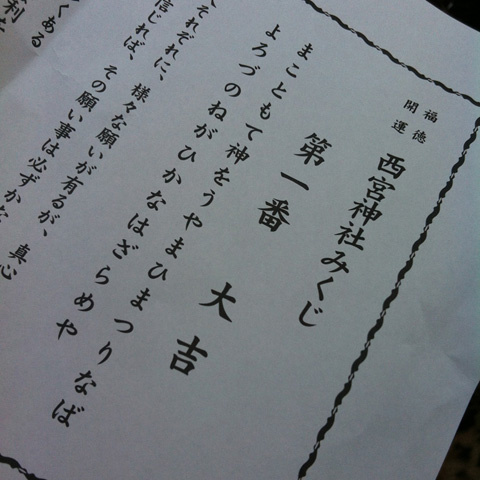 福徳
開運
西宮神社みくじ
第一番　大吉
まこともて神をうやまひまつりなば
よろづのねがひかなはざらめや
それぞれに、様々な願いが有るが、真心
信じれば、その願い事は必ずか
くある